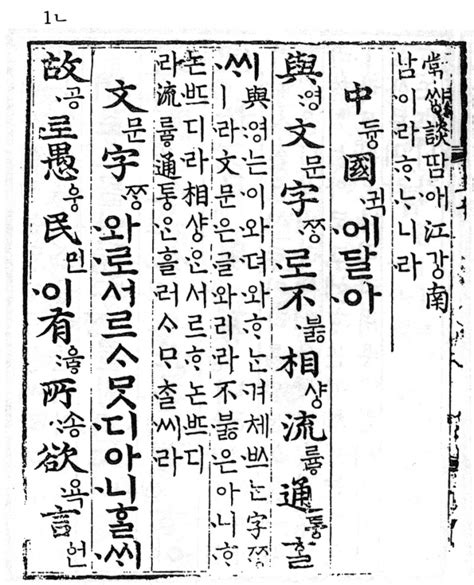 1ㄴ
常쌰ᇰ談땀애江가ᇰ南
남이라ᄒᆞᄂᆞ니라
中듀ᇰ國귁에달아
與영文문字ᄍᆞᆼ로不부ᇙ相샤ᇰ流류ᇢ通토ᇰᄒᆞᆯ
ᄊᆡ
與영는이와뎌와ᄒᆞ는겨체ᄡᅳ는字ᄍᆞᆼ
ㅣ라文문은글와리라不부ᇙ은아니ᄒᆞ
논ᄠᅳ디라相샤ᇰᄋᆞᆫ서르ᄒᆞ논ᄠᅳ디
라流류ᇢ通토ᇰᄋᆞᆫ흘러ᄉᆞᄆᆞᄎᆞᆯ씨라
文문字ᄍᆞᆼ와로서르ᄉᆞᄆᆞᆺ디아니ᄒᆞᆯᄊᆡ
故공로愚ᅌᅮᆼ民민이有우ᇢ所송欲욕言언